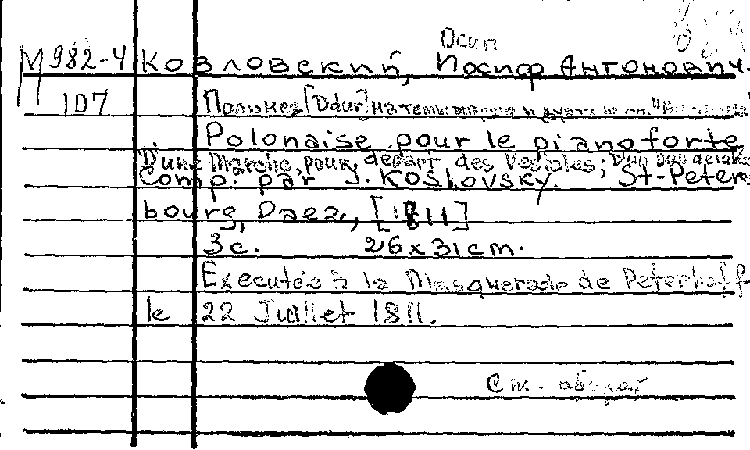 Осип
М 982-4 Козловский, Иосиф Антонович.
107 Полонез [Ddur] на темы марша и дуэта из оп.
Polonaise pour le pianoforte
D'une Marche, pour, depart des Vestales; D'un Duo de la
Comp. par J. Koslovsky. St-Peters
bourg, Daez., [1811]
3 с. 26x31 cm.
Executée à la Masquerade de Peterhoff
le 22 Juillet 1811.
См. оборот